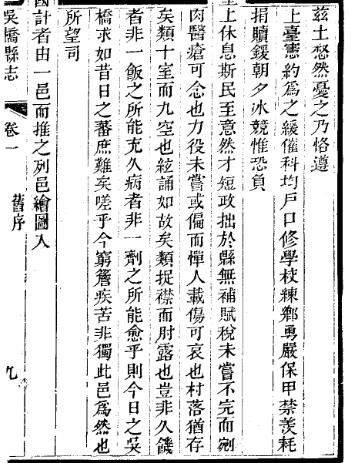 茲土愁然憂之乃恪遵
上臺憲約為之緩催科均戶口修學校練鄉勇嚴保甲禁羨耗
捐贖鍰朝夕冰兢惟恐負
上休息斯民至意然才短政拙於縣無補賦稅未嘗不完而剜
肉醫瘡可念也力役未嘗或偏而憚人載傷可哀也村落猶存
矣類十室而九空也絃誦如故矣類捉襟而肘露也豈非久饑
者非一飯之所能充久病者非一劑之所能愈乎則今日之吳
橋求如昔日之蕃庶難矣嗟乎今窮簷疾苦非獨此邑為然也
所望司
國計者由一邑而推之列邑繪圖入
吳橋縣志
卷一
舊序
九